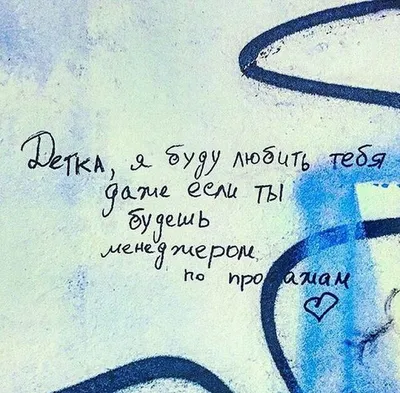 Детка, я буду любить тебя
даже если ты
будешь
менеджером
по продажам